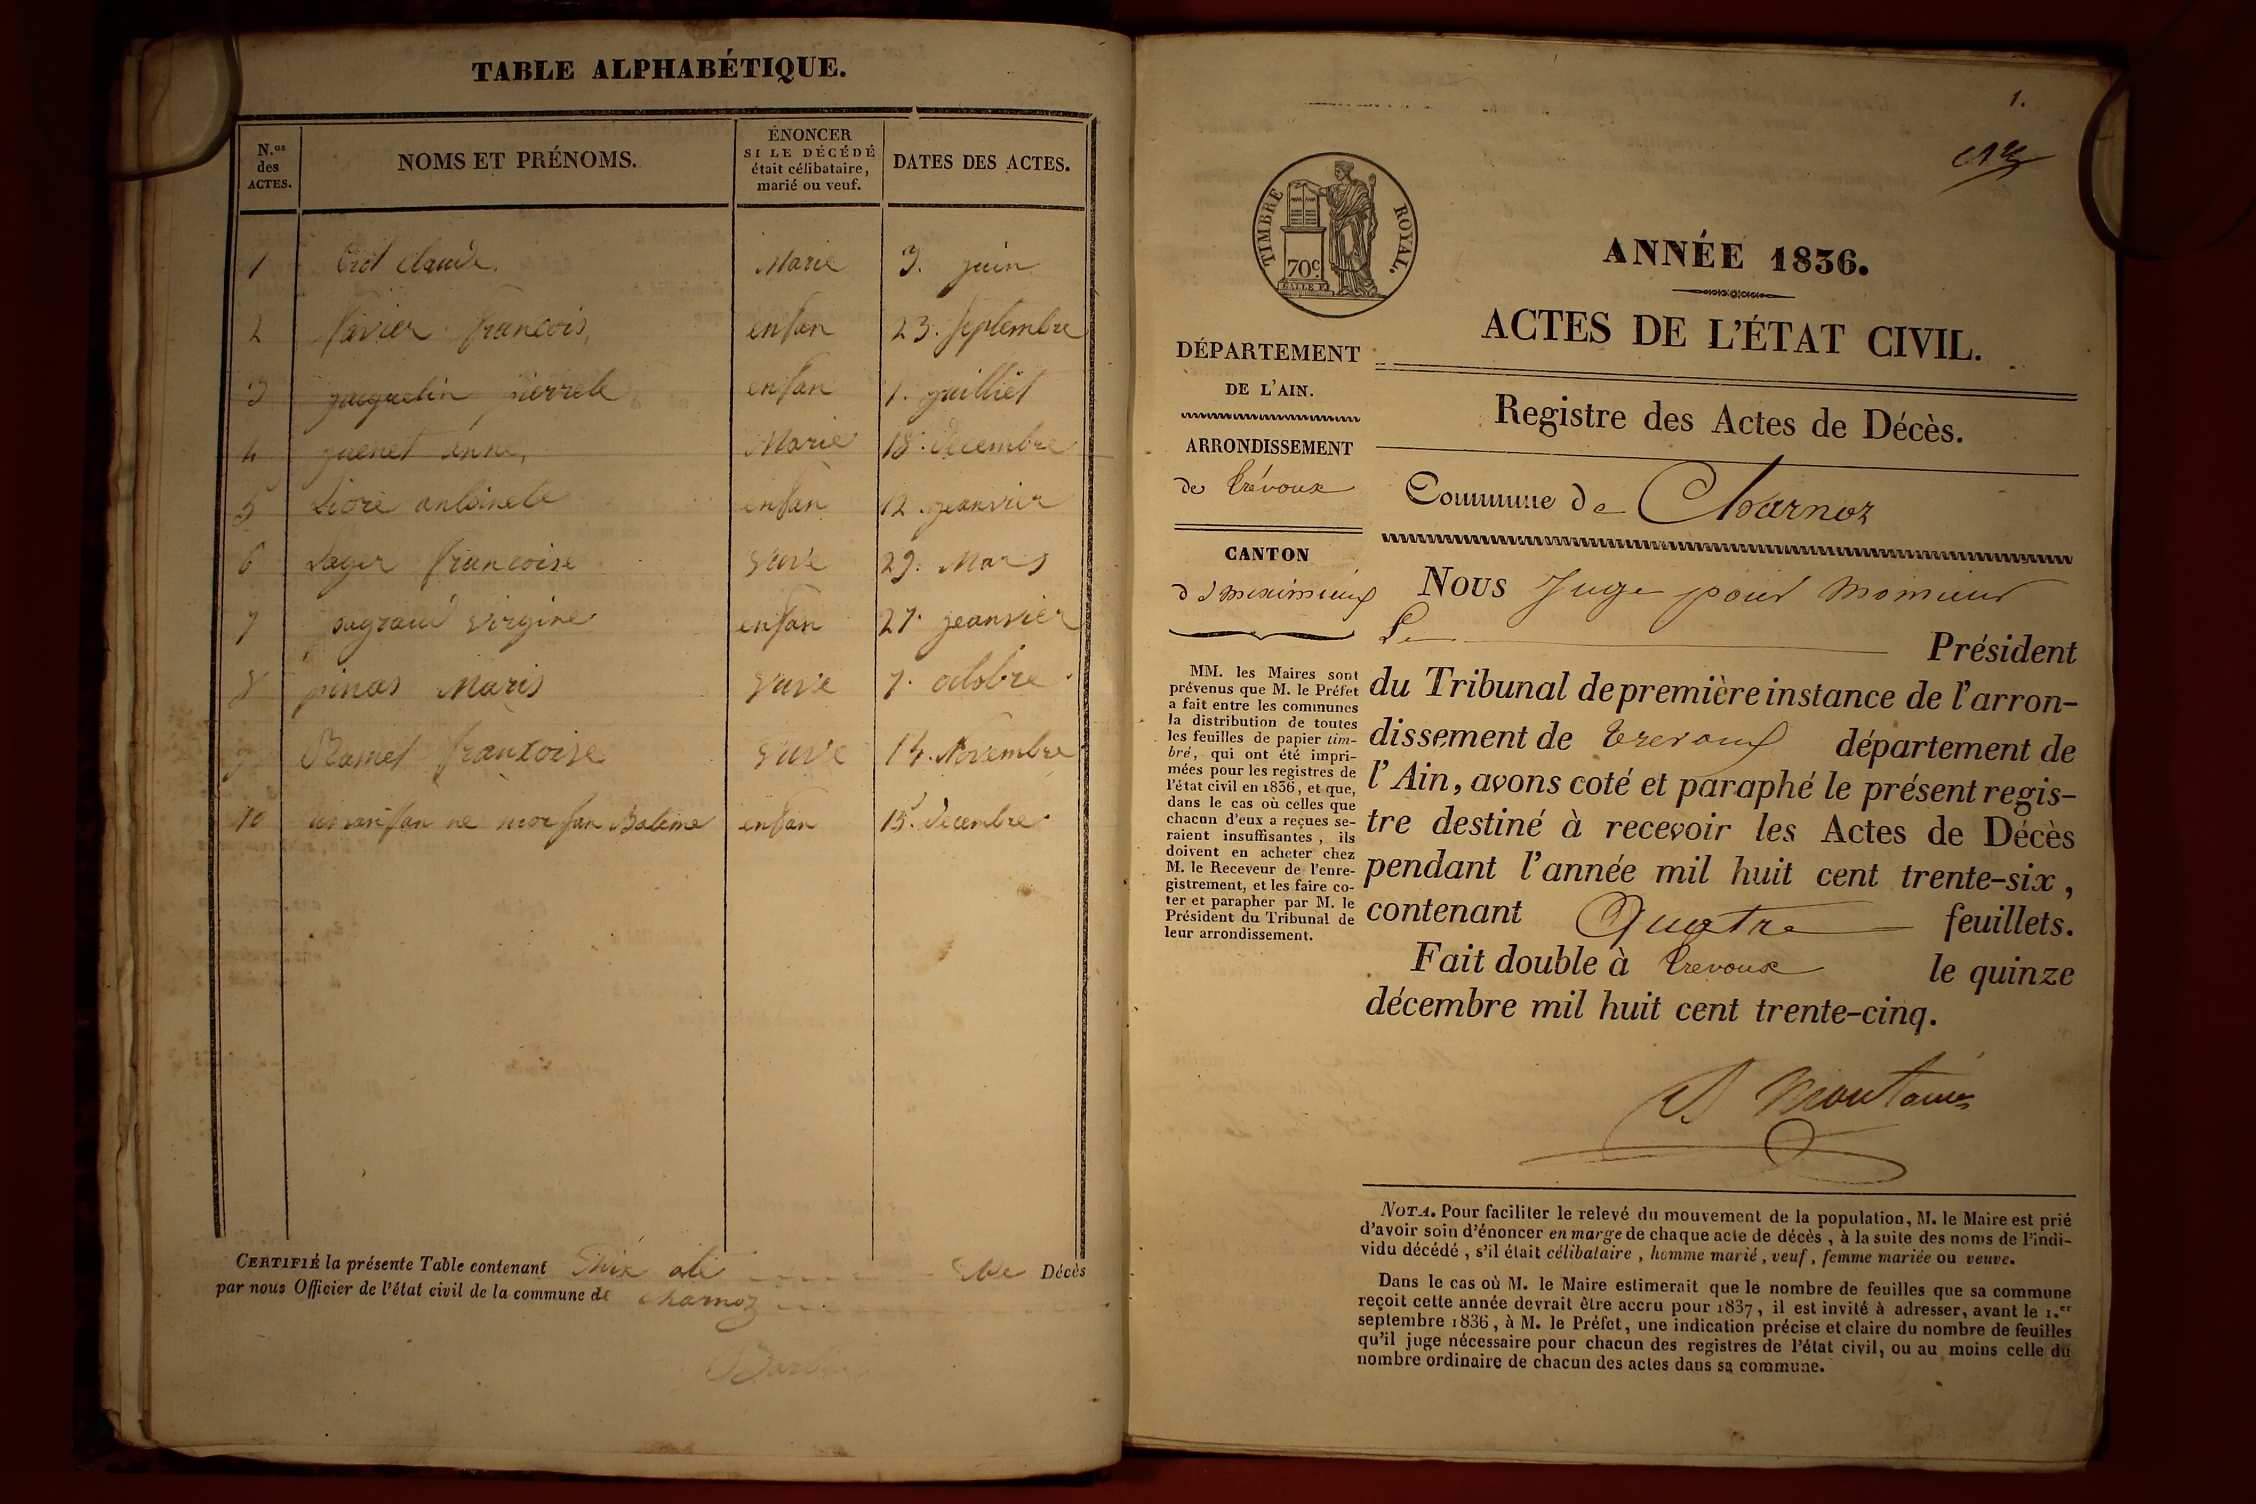 TABLE ALPHABÉTIQUE.
N.os des ACTES.
NOMS ET PRÉNOMS.
ÉNONCER SI LE DÉCÉDÉ était célibataire, marié ou veuf.
DATES DES ACTES.
1 Claude. Marie 3. juin
2 francois, enfan 23. Septembre
3 jacquelin pierrete enfan 1. juilliet
4 guenet Marie 18. decembre
5 antoinete enfan 12. jeanvier
6 francoise veuve 29. Mars
7 virgine enfan 27. jeanvier
8 pinas Maris veuve 7. octobre
9 Ramet franxoise veuve 14. Novembre
10 un anfan ne mor enfan 15. decembre
CERTIFIÉ la présente Table contenant Décès
par nous Officier de l'état civil de la commune de charnoz
1.
TIMBRE ROYAL.
70c.
ANNÉE 1836.
ACTES DE L'ÉTAT CIVIL.
DÉPARTEMENT
DE L'AIN.
Registre des Actes de Décès.
ARRONDISSEMENT
de Trévoux
Commune de Charnoz
CANTON
Nous Juge pour Monsieur
Le Président
du Tribunal de première instance de l'arron-
dissement de Trevoux département de
l'Ain, avons coté et paraphé le présent regis-
tre destiné à recevoir les Actes de Décès
pendant l'année mil huit cent trente-six,
contenant Quatre feuillets.
Fait double à Trevoux le quinze
décembre mil huit cent trente-cinq.
MM. les Maires sont
prévenus que M. le Préfet
a fait entre les communes
la distribution de toutes
les feuilles de papier tim-
bré, qui ont été impri-
mées pour les registres de
l'état civil en 1836, et que,
dans le cas où celles que
chacun d'eux a reçues se-
raient insuffisantes, ils
doivent en acheter chez
M. le Receveur de l'enre-
gistrement, et les faire co-
ter et parapher par M. le
Président du Tribunal de
leur arrondissement.
NOTA. Pour faciliter le relevé du mouvement de la population, M. le Maire est prié
d'avoir soin d'énoncer en marge de chaque acte de décès, à la suite des noms de l'indi-
vidu décédé, s'il était célibataire, homme marié, veuf, femme mariée ou veuve.
Dans le cas où M. le Maire estimerait que le nombre de feuilles que sa commune
reçoit cette année devrait être accru pour 1837, il est invité à adresser, avant le 1.er
septembre 1836, à M. le Préfet, une indication précise et claire du nombre de feuilles
qu'il juge nécessaire pour chacun des registres de l'état civil, ou au moins celle du
nombre ordinaire de chacun des actes dans sa commune.